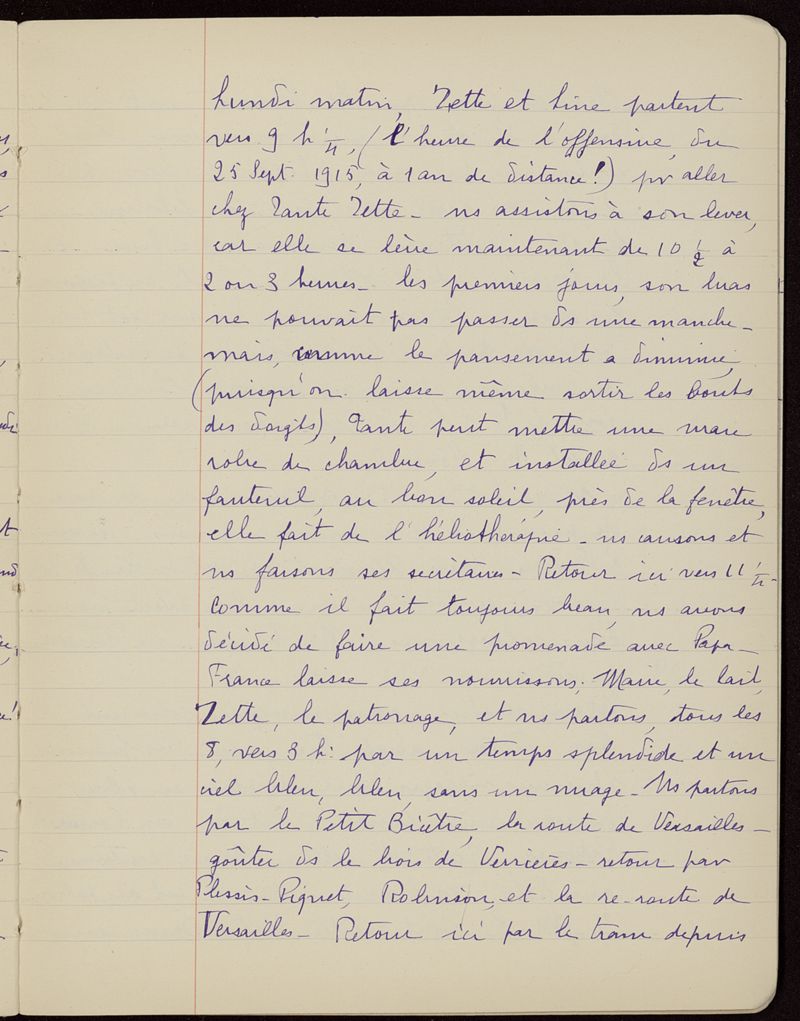 Lundi matin, Zette et Line partent
vers 9 h 1/4, (l'heure de l'offensive du
25 Sept. 1915, à 1 an de distance!) pr aller
chez Tante Zette - ns assistons à son lever,
car elle se lève maintenant de 10 1/2 à
2 ou 3 heures - les premiers jours, son bras
ne pouvait pas passer ds une manche -
mais, comme le pansement a diminué,
(puisqu'on laisse même sortir les bouts
des doigts), Tante peut mettre une vraie
robe de chambre, et installée ds un
fauteuil, au bon soleil, près de la fenêtre,
elle fait de l'héliothérapie - ns causons et
ns faisons ses secrétaires - Retour ici vers 11 1/4 -
Comme il fait toujours beau, ns avons
décidé de faire une promenade avec Papa -
France laisse ses nourrissons, Marie, le lait,
Zette, le patronage, et ns partons, tous les
8, vers 3 h: par un temps splendide et un
ciel bleu, bleu, sans un nuage - Ns partons
par le Petit Bicêtre, la route de Versailles -
goûter ds le bois de Verrières - retour par
Plessis-Piquet, Robinson, et la re-route de
Versailles - Retour ici par le tram depuis